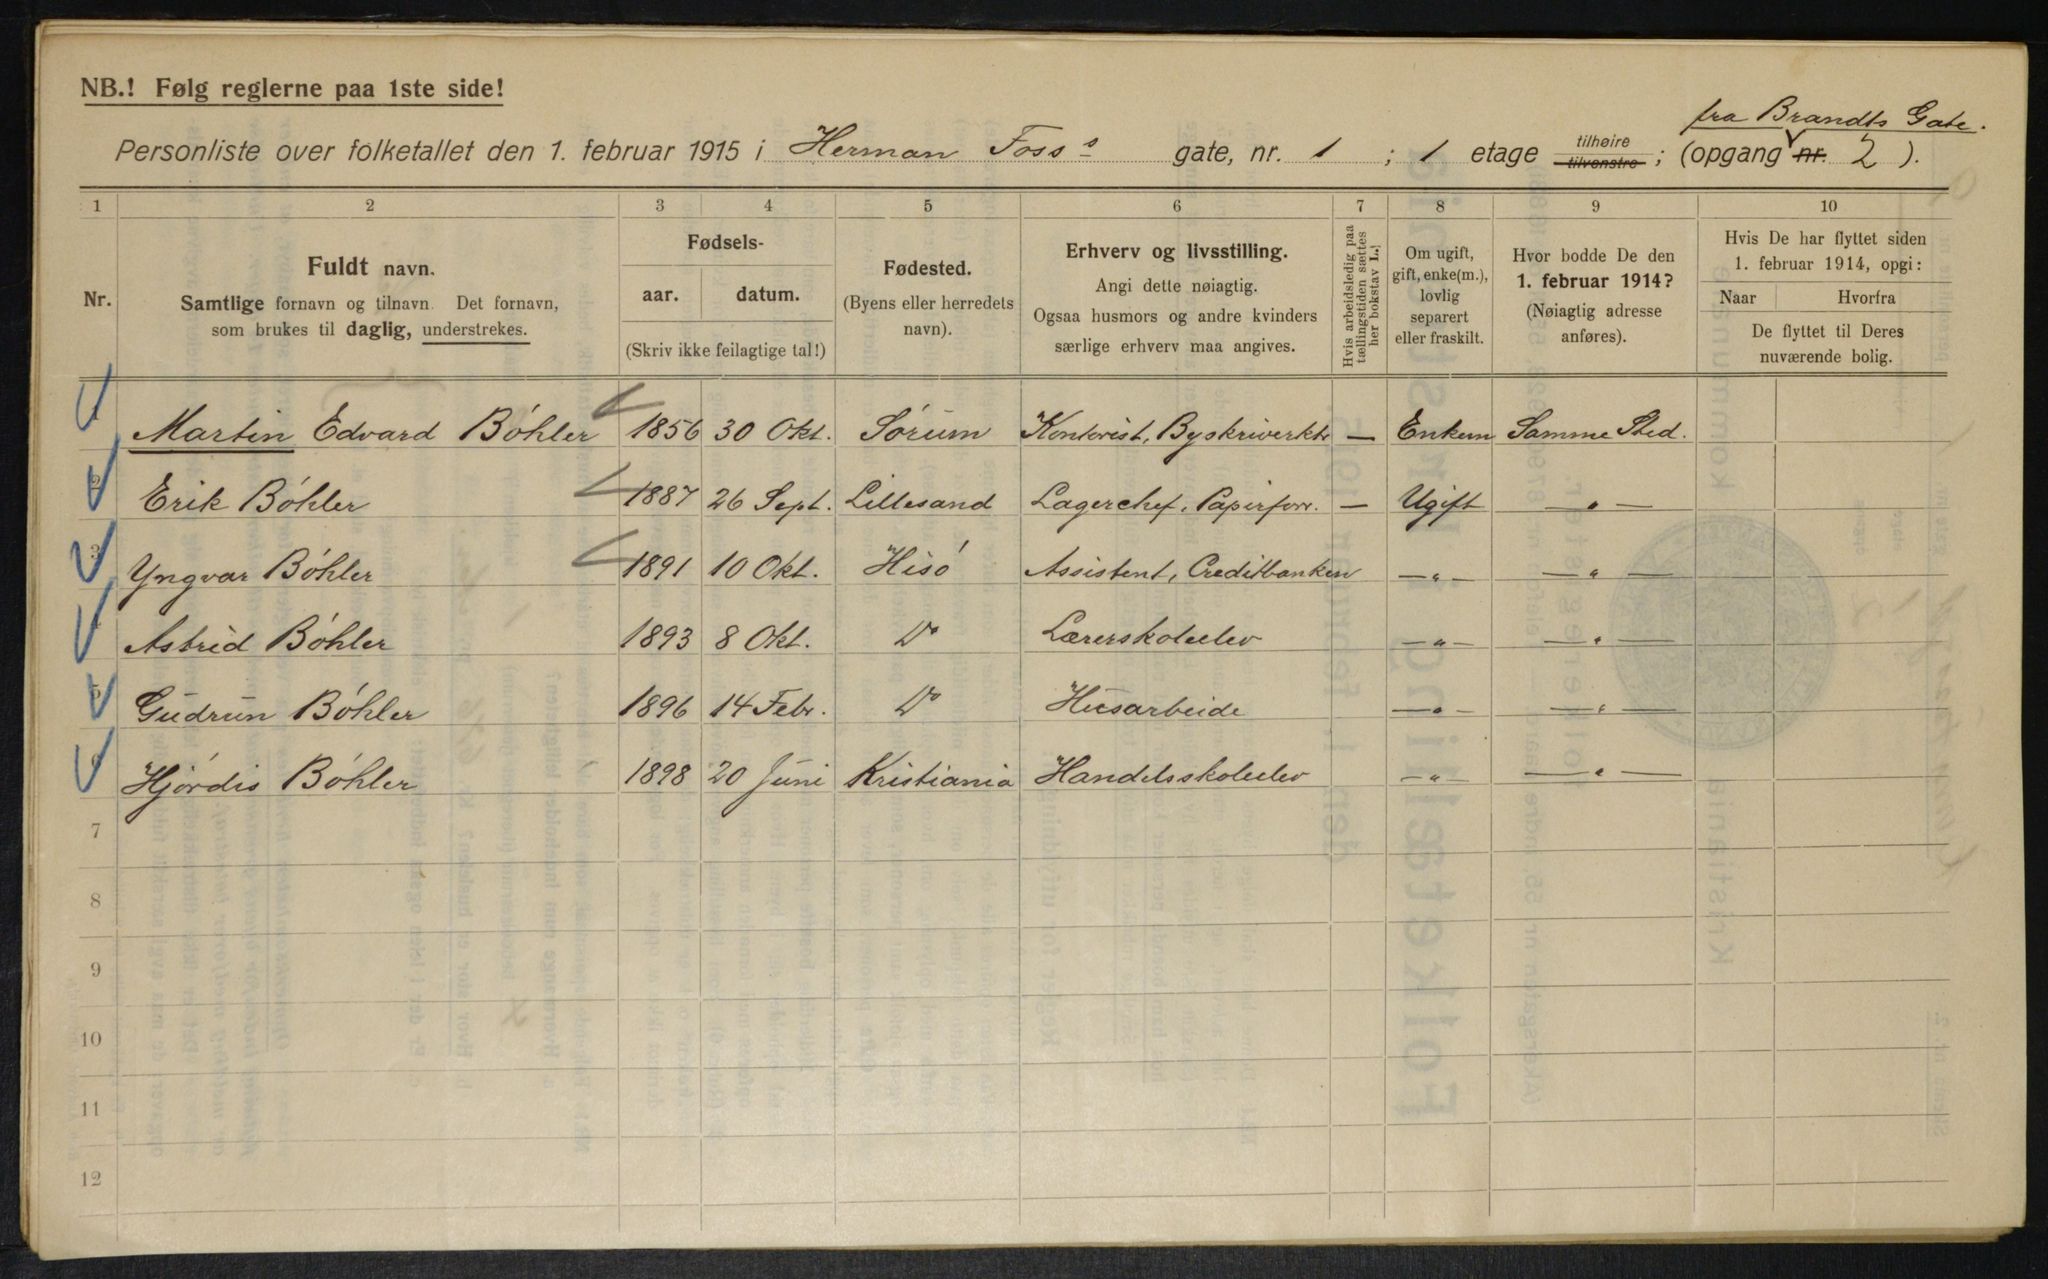 NB.! Følg reglerne paa 1ste side!
fra Brandts Gate.
Personliste over folketallet den 1. februar 1915 i Herman Foss's gate, nr. 1 ; 1 etage tilhøire tilvenstre ; (opgang nr. 2 ).
1 2 3 4 5 6 7 8 9 10
Nr.
Fuldt navn.
Samtlige fornavn og tilnavn. Det fornavn,
som brukes til daglig, understrekes.
Fødsels-
aar. datum.
(Skriv ikke feilagtige tal!)
Fødested.
(Byens eller herredets
navn).
Erhverv og livsstilling.
Angi dette nøiagtig.
Ogsaa husmors og andre kvinders
særlige erhverv maa angives.
Hvis arbeidsledig paa
tællingstiden sættes
her bokstav L.
Om ugift,
gift, enke(m.),
lovlig
separert
eller fraskilt.
Hvor bodde De den
1. februar 1914?
(Nøiagtig adresse
anføres).
Hvis De har flyttet siden
1. februar 1914, opgi:
Naar Hvorfra
De flyttet til Deres
nuværende bolig.
1 Martin Edvard Bøhler 1856 30 Okt. Sørum Kontorist, Byskriverktr — Enkem Samme Sted.
2 Erik Bøhler 1887 26 Sept. Lillesand Lagerchef, Papirforr. — Ugift — „ —
3 Yngvar Bøhler 1891 10 Okt. Hisø Assistent, Creditbanken — „ — — „ —
4 Astrid Bøhler 1893 8 Okt. Do Lærerskoleelev — „ — — „ —
5 Gudrun Bøhler 1896 14 Febr. Do Husarbeide — „ — — „ —
6 Hjørdis Bøhler 1898 20 Juni Kristiania Handelsskoleelev — „ — — „ —
7
8
9
10
11
12